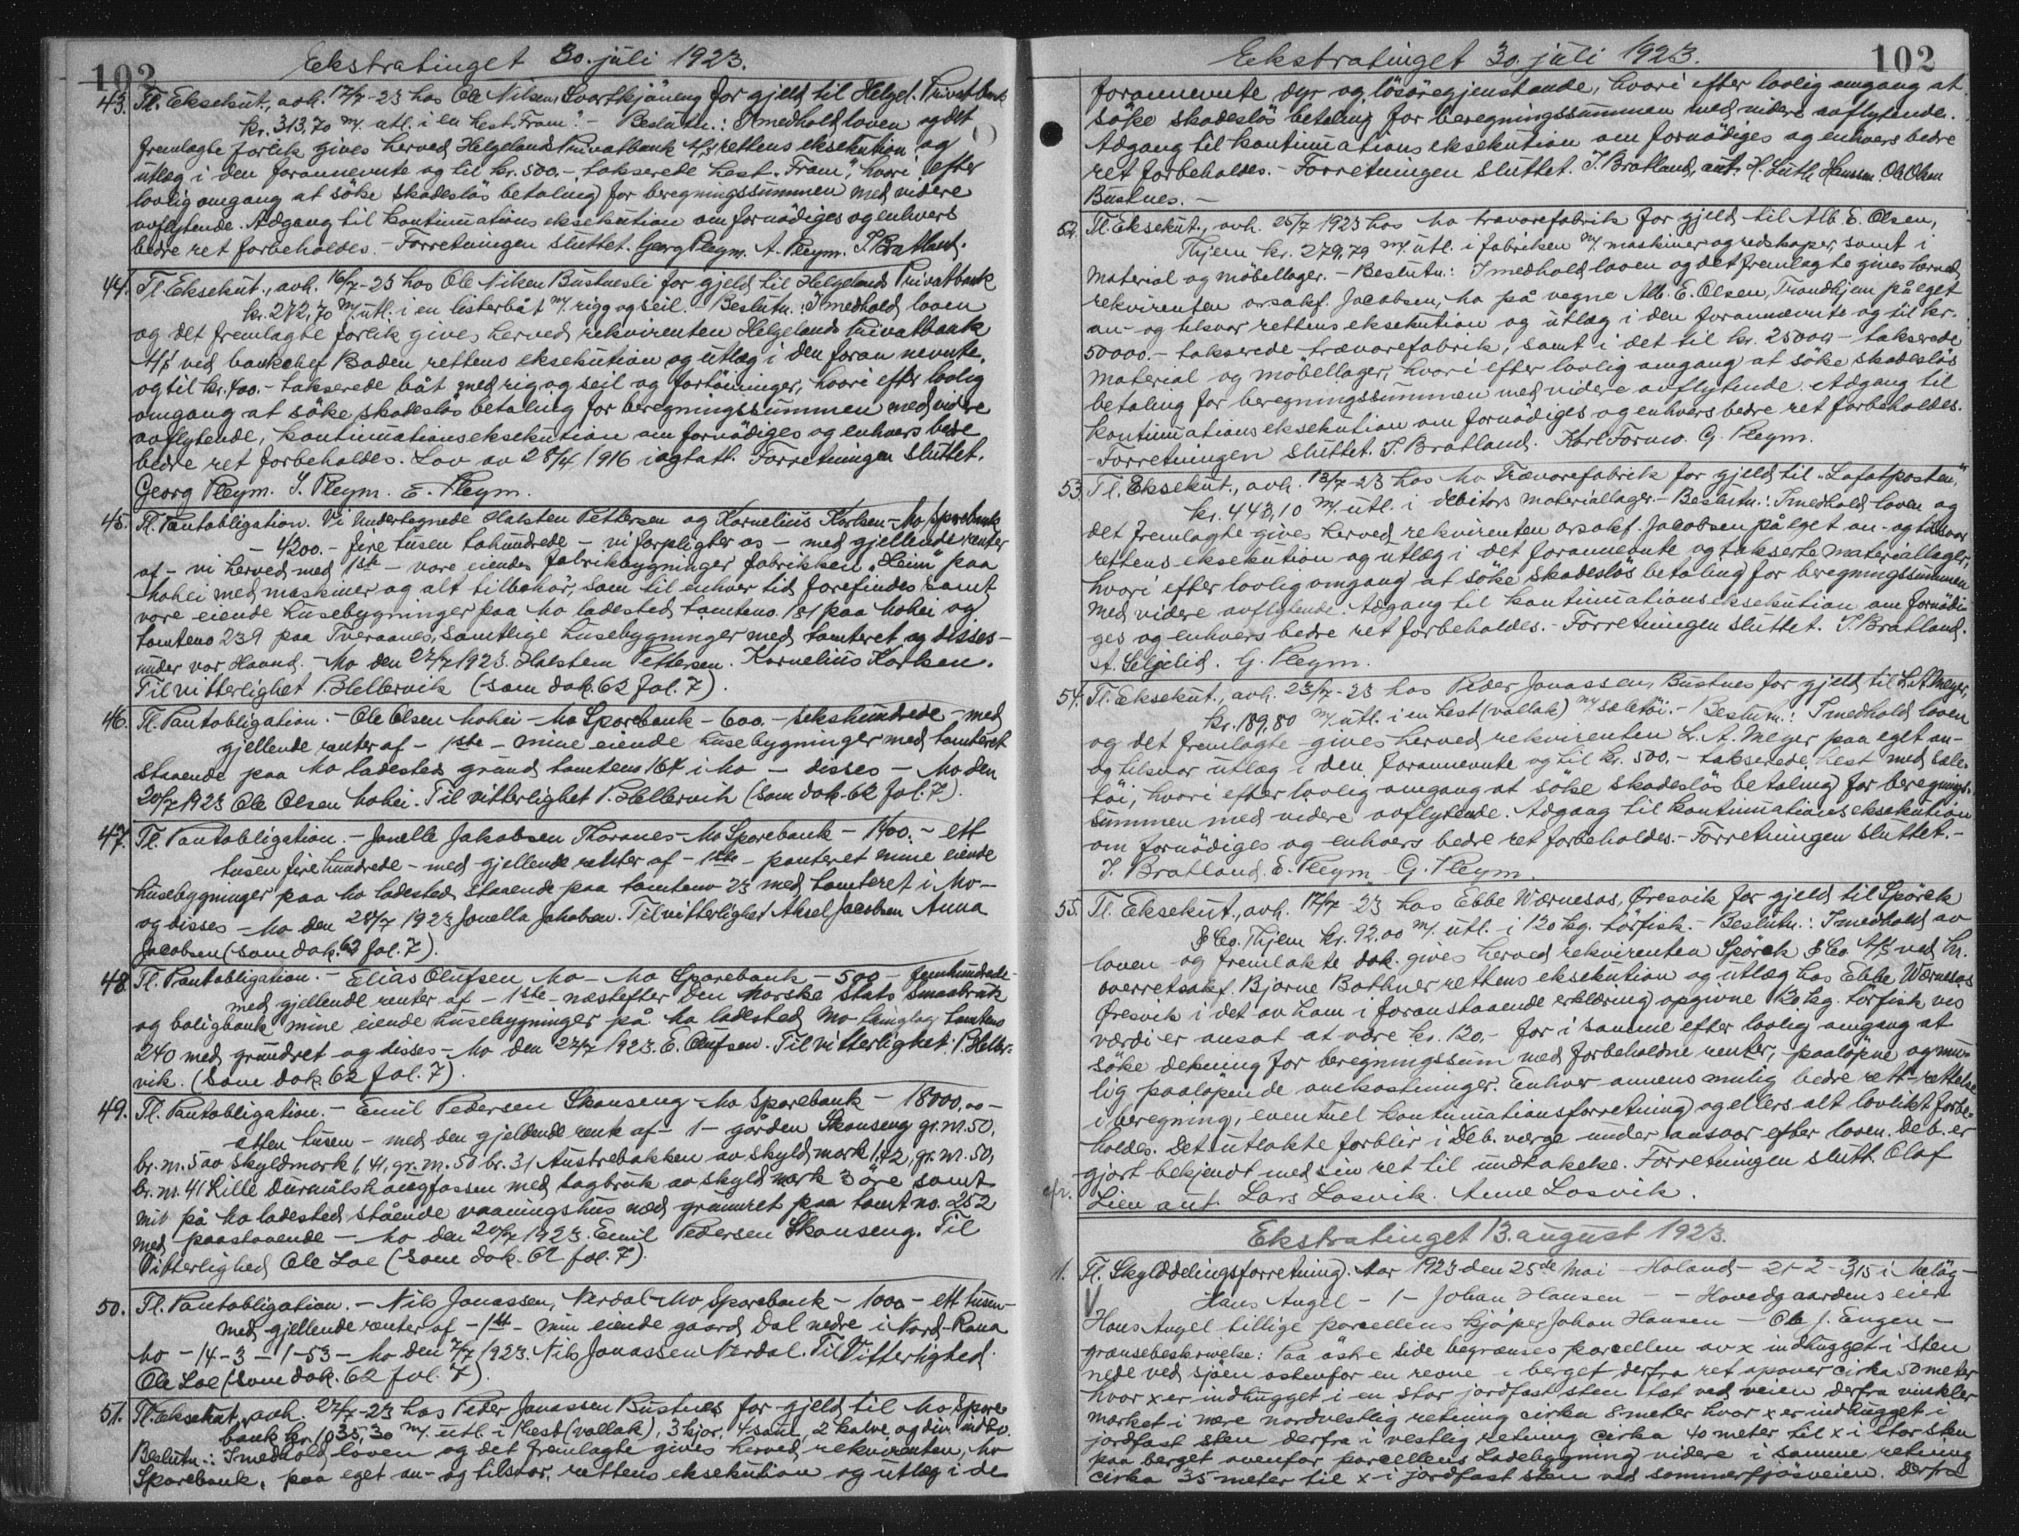 102
Ekstratinget 30. juli 1923.
43. Tl. Eksekut., avh. 17/7-23 hos Ole Nilsen, Svartkjöneng for gjeld til Helgel. Privatbank
kr. 313,70 m/ utl. i en hest "Fram". - Beslutn.: I medhold loven og det
fremlagte forlik gives herved Helgelands Privatbank A/S rettens eksekution og
utlæg i den forannevnte og til kr. 500.- takserede hest "Fram", hvori efter
lovlig omgang at söke skadeslös betaling for beregningssummen med videre
avflytende. Adgang til kontinuationseksekution om fornödiges og enhvers
bedre ret forbeholdes. - Forretningen sluttet. Georg Pleym. A. Pleym. I. Bratland.
44. Tl. Eksekut., avh. 16/7-23 hos Ole Nilsen Bustnesli for gjeld til Helgelands Privatbank
kr. 272,70 m/ utl. i en listerbåt m/ rigg og seil. Beslutn.: I medhold loven
og det fremlagte forlik gives herved rekvirenten Helgelands Privatbank
A/S ved bankchef Baden rettens eksekution og utlæg i den foran nevnte,
og til kr. 400.- takserede båt med rig og seil og fortöininger, hvori efter lovlig
omgang at söke skadeslös betaling for beregningssummen med videre
avflytende, kontinuationseksekution om fornödiges og enhvers bedre
bedre ret forbeholdes. Lov av 28/4 1916 iagtatt. Forretningen sluttet.
Georg Pleym. I. Pleym. E. Pleym.
45. Tl. Pantobligation. Vi Undertegnede Halsten Pettersen og Kornelius Karlsen - Mo Sparebank
- 4200.- fire tusen tohundrede - vi forpligter os - med gjellende renter
af - vi herved med 1ste - vore eiendes fabrikbygninger fabrikken "Heim" paa
Mohei med maskiner og alt tilbehör, som til enhver tid forefindes samt
vore eiende husebygninger paa Mo ladested tomteno. 181 paa Mohei og
tomteno 239 paa Tveraanes, samtlige husebygninger med tomteret og disses -
under vor Haand. - Mo den 27/7 1923. Halsten Pettersen. Kornelius Karlsen.
Til vitterlighet P. Hellervik (som dok. 62 fol. 7).
46. Tl. Pantobligation. - Ole Olsen Mohei - Mo Sparebank - 600.- sekshundrede - med
gjellende renter af - 1ste - mine eiende husebygninger med tomteret
staaende paa Mo ladesteds grund tomtens 164 i Mo - disses - Mo den
20/7 1923 Ole Olsen Mohei. Til vitterlighet P. Hellervik (som dok. 62 fol. 7).
47. Tl. Pantobligation. - Jonelle Jakobsen Thoranes - Mo Sparebank - 1400.- ett
tusen fire hundrede - med gjellende renter af - 1ste - panteret mine eiende
husebygninger paa Mo ladested staaende paa tomteno 23 med tomteret i Mo -
og disses - Mo den 28/7 1923 Jonella Jakobsen. Til vitterlighet Aksel Jacobsen Anna
Jacobsen (som dok. 62 fol. 7).
48. Tl. Pantobligation. - Elias Olufsen Mo - Mo Sparebank - 500 - femhundrede -
med gjellende renter af - 1ste - næstefter Den Norske Stats Smaabruk
og boligbank mine eiende husebygninger på Mo ladested tomteno
240 med grundret og disses - Mo den 27/7 1923. E. Olufsen. Til vitterlighet: P. Heller-
vik. (som dok. 62 fol. 7).
49. Tl. Pantobligation. - Emil Pedersen Skonseng - Mo Sparebank - 18000,00 -
atten tusen - med den gjeldende rente af - 1 - gården Skonseng gr. nr. 50,
br. nr. 5 av skyldmark 1,41, gr. nr. 50 br. 31 Austrebakken av skyld mark 1,72, gr. nr. 50,
br. nr. 41 Lille Durmålshaugfossen med sagbruk av skyld mark 3 öre samt
mit på Mo ladested stående vaaningshus med grunnret paa tomt no. 252
med paastaaende - Mo den 20/7 1923. Emil Pedersen Skonseng. Til
Vitterlighed Ole Loe (som dok. 62 fol. 7).
50. Tl. Pantobligation. - Nils Jonassen, Nerdal - Mo Sparebank - 1000 - ett tusen -
med gjellende renter af - 1ste - min eiende gaard Dal nedre i Nord-Rana
Mo - 14 - 3 - 1-53 - Mo den 7/7 1923. Nils Jonassen Nerdal. Til Vitterlighed
Ole Loe (som dok. 62 fol. 7).
51. Tl. Eksekut., avh. 27/7-23 hos Peder Jonassen Bustnes for gjeld til Mo Spare-
bank kr. 1035,30 m/ utl. i 1 hest (vallak), 3 kjör, 4 saue, 2 kalve og div. indbo.
Beslutn.: I medhold loven og det fremlagte gives herved rekvirenten, Mo
Sparebank, paa eget an- og tilsvar, rettens eksekution og utlæg i de
Ekstratinget 30. juli 1923.
102
forannevnte dyr og lösöregjenstande, hvori efter lovlig omgang at
söke skadeslös betaling for beregningssummen med videre avflytende.
Adgang til kontinuationseksekution om fornödiges og enhvers bedre
ret forbeholdes. - Forretningen sluttet. I. Bratland, aut. H. Luth Hansen. Ole Olsen
Bustnes. -
52. Tl. Eksekut., avh. 25/7 1923 hos Mo trævarefabrik for gjeld til Alb. E. Olsen,
Thjem kr. 279,79 m/ utl. i fabriken m/ maskiner og redskaper, samt i
material og möbellager. - Beslutn.: I medhold loven og det fremlagte gives herved
rekvirenten orsakf. Jacobsen, Mo på vegne Alb. E. Olsen, Trondhjem på eget
an- og tilsvar rettens eksekution og utlæg i den forannævnte og til kr.
50000.- takserede trævarefabrik, samt i det til kr. 25000 - takserede
material og möbellager, hvori efter lovlig omgang at söke skadeslös
betaling for beregningssummen med videre avflytende. Adgang til
kontinuationseksekution om fornödiges og enhvers bedre ret forbeholdes.
- Forretningen sluttet. I. Bratland. Karl Formo. G. Pleym.
53. Tl. Eksekut., avh. 13/7-23 hos Mo Trævarefabrik for gjeld til "Lofotposten,"
kr. 443,10 m/ utl. i debitors materiallager. - Beslutn.: I medhold loven og
det fremlagte gives herved rekvirenten orsakf. Jacobsen på eget an- og tilsvar
rettens eksekution og utlæg i det forannevnte og takserte materiallager,
hvori efter lovlig omgang at söke skadeslös betaling for beregningssummen
med videre avflytende. Adgang til kontinuationseksekution om fornödi-
ges og enhvers bedre ret forbeholdes. - Forretningen sluttet. I. Bratland.
A. Seljelid. G. Pleym.
54. Tl. Eksekut., avh. 23/7-23 hos Peder Jonassen, Bustnes for gjeld til L.A. Meyer,
kr. 189,80 m/ utl. i en hest (vallak) m/ seletöi. - Beslutn.: I medhold loven
og det fremlagte gives herved rekvirenten L. A. Meyer paa eget an-
og tilsvar utlæg i den forannevnte og til kr. 500.- takserede hest med sele-
töi, hvori efter lovlig omgang at söke skadeslös betaling for beregnings-
summen med videre avflytende. Adgang til kontinuationseksekution
om fornödiges og enhvers bedre ret forbeholdes. - Forretningen sluttet. -
I. Bratland. E. Pleym. G. Pleym.
55. Tl. Eksekut., avh. 17/7-23 hos Ebbe Wærnesos, Øresvik for gjeld til Spörck
& Co. Thjem kr. 92,00 m/ utl. i 120 kg. törfisk. - Beslutn.: I medhold av
loven og fremlakte dok. gives herved rekvirenten Spörck & Co A/S ved hr.
overretssakf. Bjarne Bothner rettens eksekution og utlæg hos Ebbe Wærnesos
Øresvik i det av ham i foranstaaende erklæring opgivne 120 kg. törfisk hvis
værdi er ansat at være kr. 120.- for i samme efter lovlig omgang at
söke dekning for beregningssum med forbeholdne renter, paalöpne og mu-
lig paalöpende omkostninger. Enhver annens mulig bedre rett - rettelse
i beregning, eventuel kontinuationsforretning og ellers alt lovlikt forbe-
holdes. Det utlakte forblir i deb. værge under ansvar efter loven. Deb. er
gjort bekjendt med sin ret til undtakelse. Forretningen slutt. Olaf
Lien aut. Lars Losvik. Arne Losvik.
Ekstratinget 13. august 1923.
1. Tl. Skylddelingsforretning. Aar 1923 den 25de Mai - Holand - 21-2-3,15 i Melöy -
Hans Angel - 1 - Johan Hansen - - Hovedgaardens eier
Hans Angel tillige parcellens kjöper Johan Hansen - Ole J. Engen -
grænsebeskrivelse: Paa östre side begrænses parcellen av x indhugget i sten
nede ved sjöen östenfor en revne i berget derfra ret opover cirka 50 meter
hvor x er indhugget i en stor jordfast sten tæt ved veien derfra vinkler
merket i nære nordvestlig retning cirka 8 meter hvor x er indhugget i
jordfast sten derfra i vestlig retning cirka 40 meter til x i stor sten
paa berget ovenfor parcellens Ladebygning videre i samme retning
cirka 35 meter til x i jordfast sten ved sommerfjösveien. Derfra